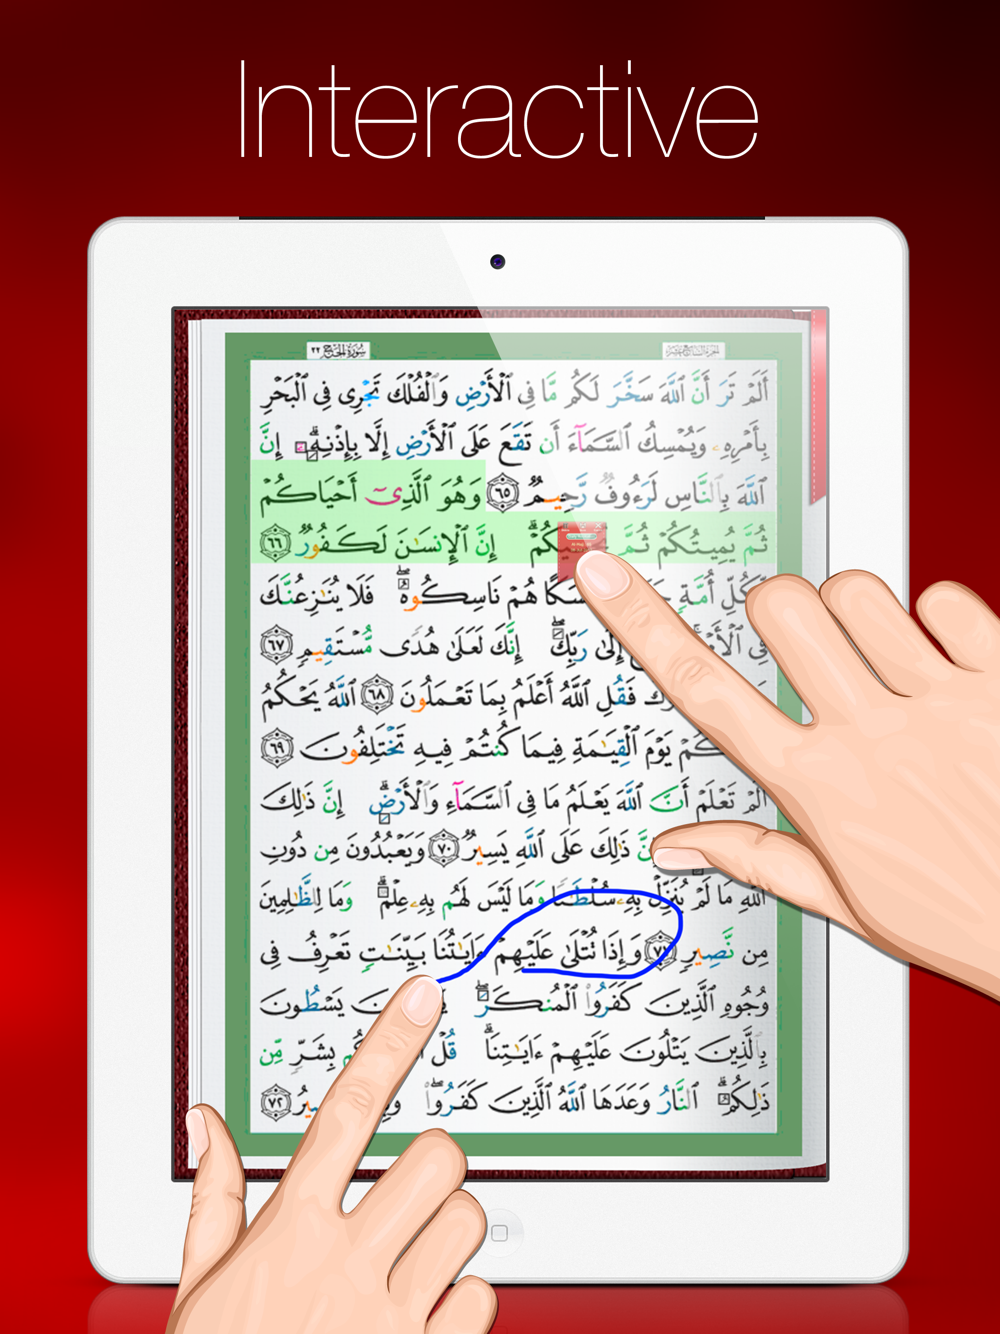 Interactive
سورة الحج ٢٢
أَلَمْ تَرَ أَنَّ ٱللَّهَ سَخَّرَ لَكُم مَّا فِي ٱلْأَرْضِ وَٱلْفُلْكَ تَجْرِي فِي ٱلْبَحْرِ
بِأَمْرِهِۦ وَيُمْسِكُ ٱلسَّمَآءَ أَن تَقَعَ عَلَى ٱلْأَرْضِ إِلَّا بِإِذْنِهِۦٓ ۗ إِنَّ
ٱللَّهَ بِٱلنَّاسِ لَرَءُوفٌ رَّحِيمٌ ٦٥ وَهُوَ ٱلَّذِىٓ أَحْيَاكُمْ
ثُمَّ يُمِيتُكُمْ ثُمَّ يُحْيِيكُمْ ۗ إِنَّ ٱلْإِنسَـٰنَ لَكَفُورٌ ٦٦
لِّكُلِّ أُمَّةٍ مَنسَكًا هُمْ نَاسِكُوهُ ۖ فَلَا يُنَـٰزِعُنَّكَ
فِى ٱلْأَمْرِ إِلَىٰ رَبِّكَ ۖ إِنَّكَ لَعَلَىٰ هُدًى مُّسْتَقِيمٍ ٦٧
فَقُلِ ٱللَّهُ أَعْلَمُ بِمَا تَعْمَلُونَ ٦٨ ٱللَّهُ يَحْكُمُ
يَوْمَ ٱلْقِيَـٰمَةِ فِيمَا كُنتُمْ فِيهِ تَخْتَلِفُونَ ٦٩
أَلَمْ تَعْلَمْ أَنَّ ٱللَّهَ يَعْلَمُ مَا فِى ٱلسَّمَآءِ وَٱلْأَرْضِ ۗ إِنَّ ذَٰلِكَ
إِنَّ ذَٰلِكَ عَلَى ٱللَّهِ يَسِيرٌ ٧٠ وَيَعْبُدُونَ مِن دُونِ
ٱللَّهِ مَا لَمْ يُنَزِّلْ بِهِۦ سُلْطَـٰنًا وَمَا لَيْسَ لَهُم بِهِۦ عِلْمٌ ۗ وَمَا لِلظَّـٰلِمِينَ
مِن نَّصِيرٍ ٧١ وَإِذَا تُتْلَىٰ عَلَيْهِمْ ءَايَـٰتُنَا بَيِّنَـٰتٍ تَعْرِفُ فِى
وُجُوهِ ٱلَّذِينَ كَفَرُوا۟ ٱلْمُنكَرَ ۖ يَسْطُونَ
بِٱلَّذِينَ يَتْلُونَ عَلَيْهِمْ ءَايَـٰتِنَا ۗ قُلْ بِشَرٍّ مِّن
ذَٰلِكُمُ ۗ ٱلنَّارُ وَعَدَهَا ٱللَّهُ ٱلَّذِينَ كَفَرُوا۟ ۖ ٧٢